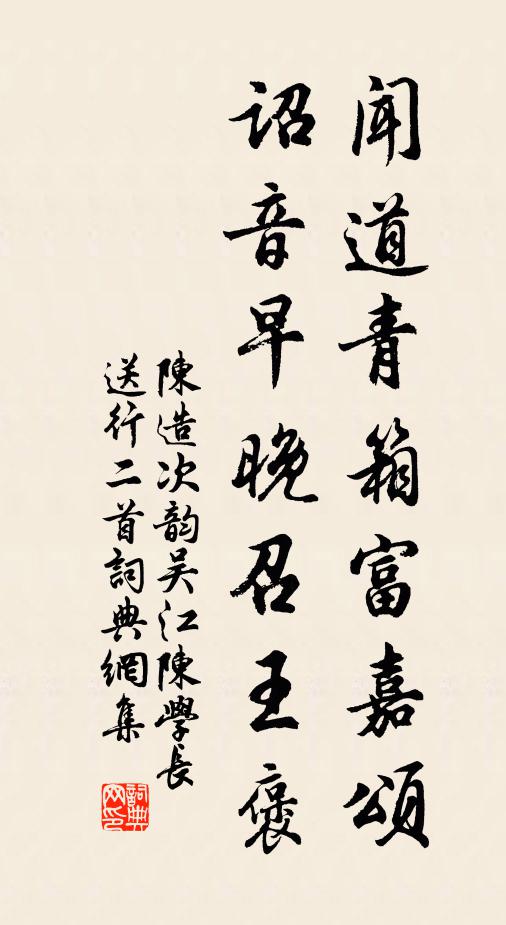 聞道青箱富嘉頌
詔音早晚召王褒
陳造次韵吴江陳學長
送行二首詞典網集
詞典
网印